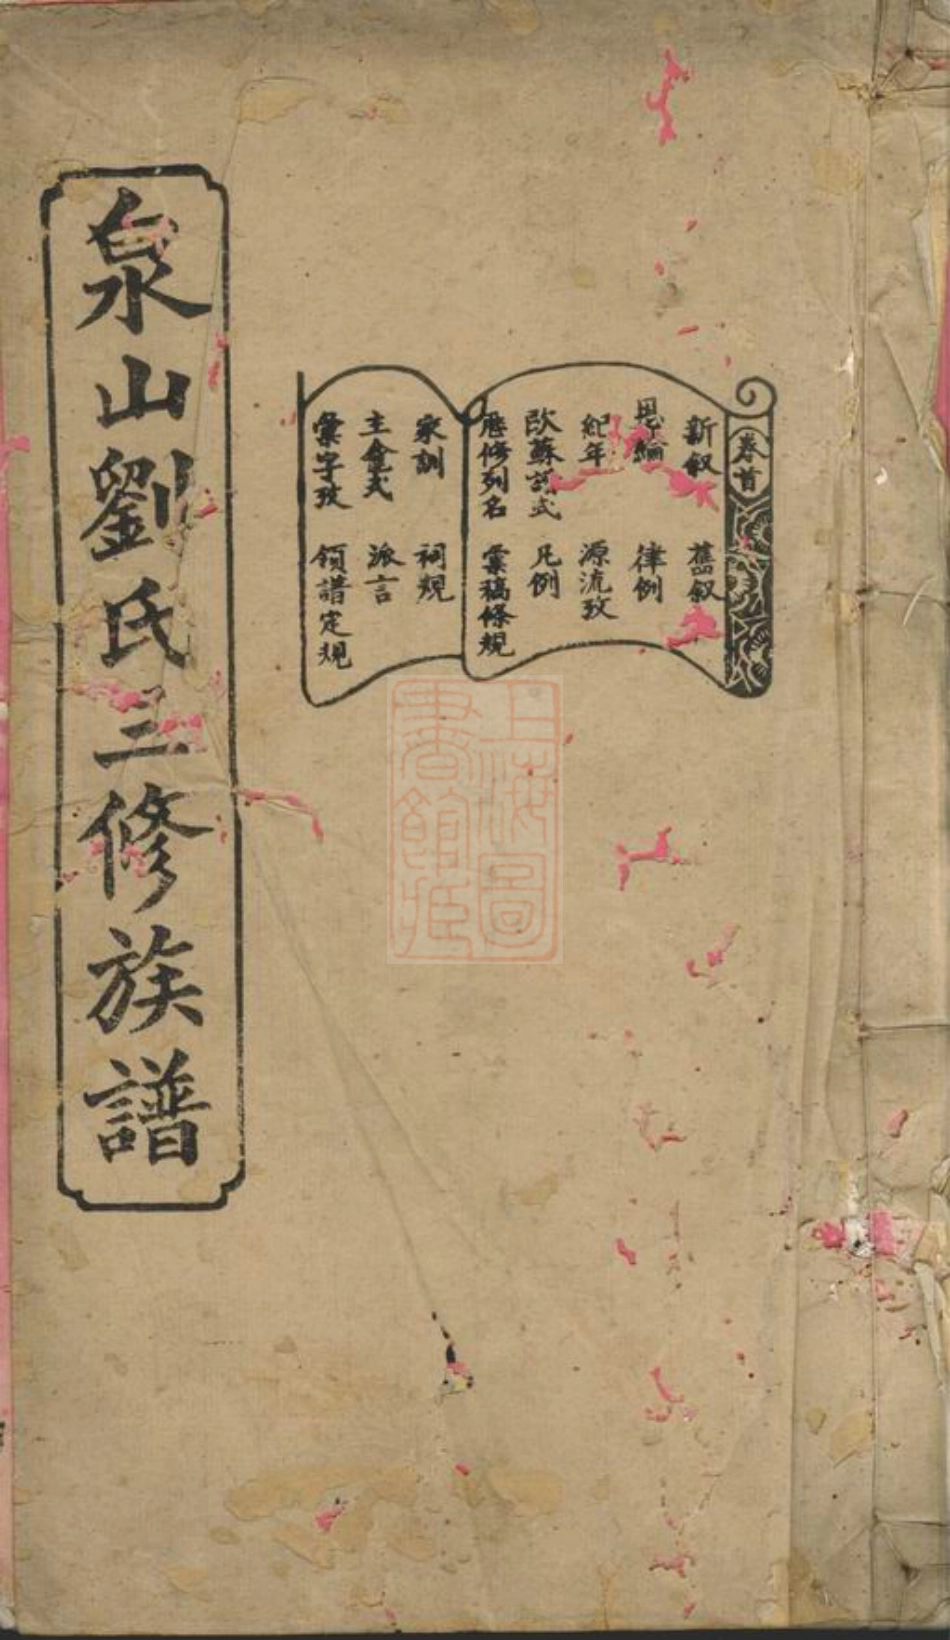 卷首
新叙 舊叙
恩綸 律例
紀年 源流攷
歐蘇譜式 凡例
歷修列名 彚稿條規
家訓 祠規
主龕式 派言
彚字攷 領譜定規
泉山劉氏三修族譜
上海圖
書館藏